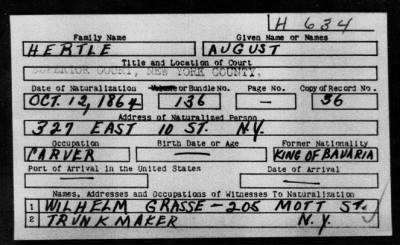 H 634
Family Name Given Name or Names
HERTLE AUGUST
Title and Location of Court
SUPERIOR COURT, NEW YORK COUNTY.
Date of Naturalization Volume or Bundle No. Page No. Copy of Record No.
OCT. 12, 1864 136 — 36
Address of Naturalized Person
327 EAST 10 ST. N.Y.
Occupation Birth Date or Age Former Nationality
CARVER — KING OF BAVARIA
Port of Arrival in the United States Date of Arrival
— —
Names, Addresses and Occupations of Witnesses To Naturalization
1 WILHELM GRASSE - 205 MOTT ST.
2 TRUNK MAKER N.Y.